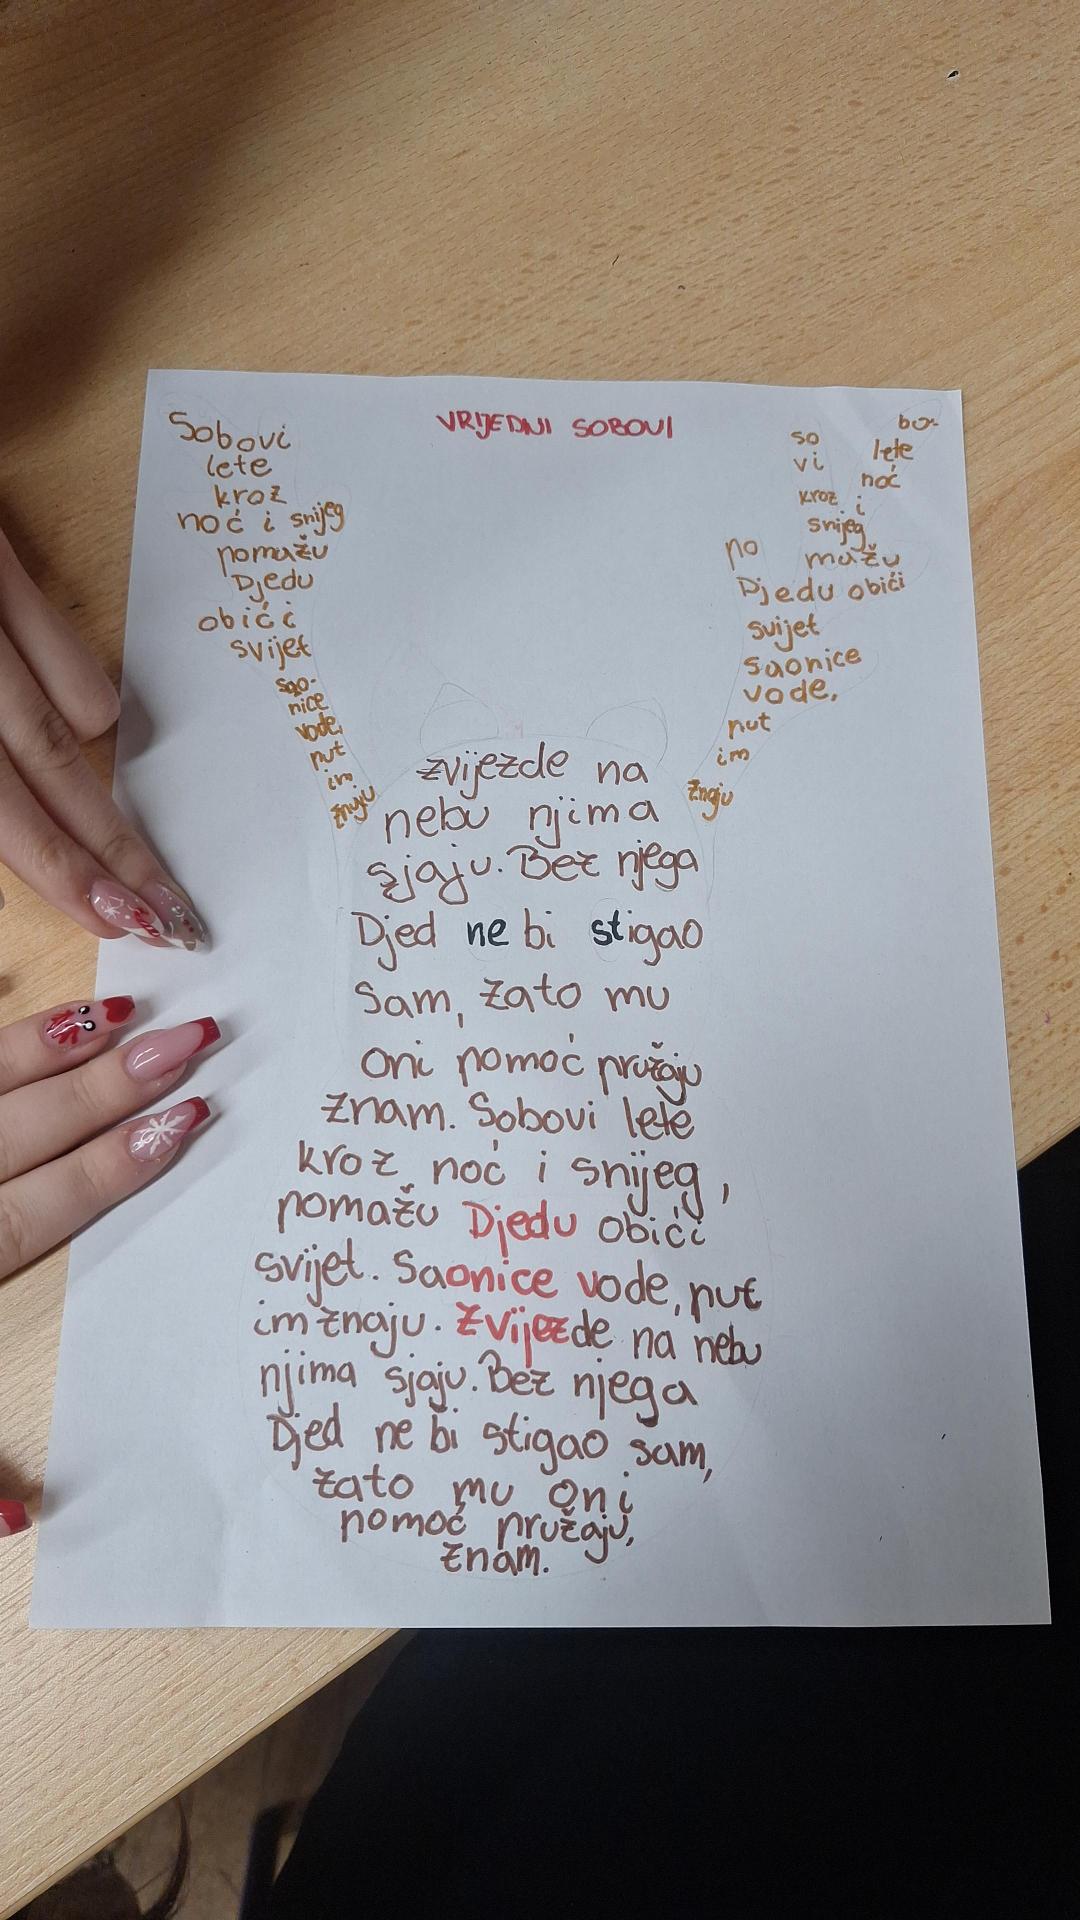 VRIJEDNI SOBOVI
Sobovi
lete
kroz
noć i snijeg
pomažu
Djedu
obići
svijet
sao-
nice
vode,
put
im
znaju
so bo-
vi lete
noć
kroz i
snijeg
po mažu
Djedu obići
svijet
saonice
vode,
put
im
znaju
zvijezde na
nebu njima
sjaju. Bez njega
Djed ne bi stigao
sam, zato mu
oni pomoć pružaju
znam. Sobovi lete
kroz noć i snijeg,
pomažu Djedu obići
svijet. Saonice vode, put
im znaju. Zvijezde na nebu
njima sjaju. Bez njega
Djed ne bi stigao sam,
zato mu oni
pomoć pružaju,
znam.